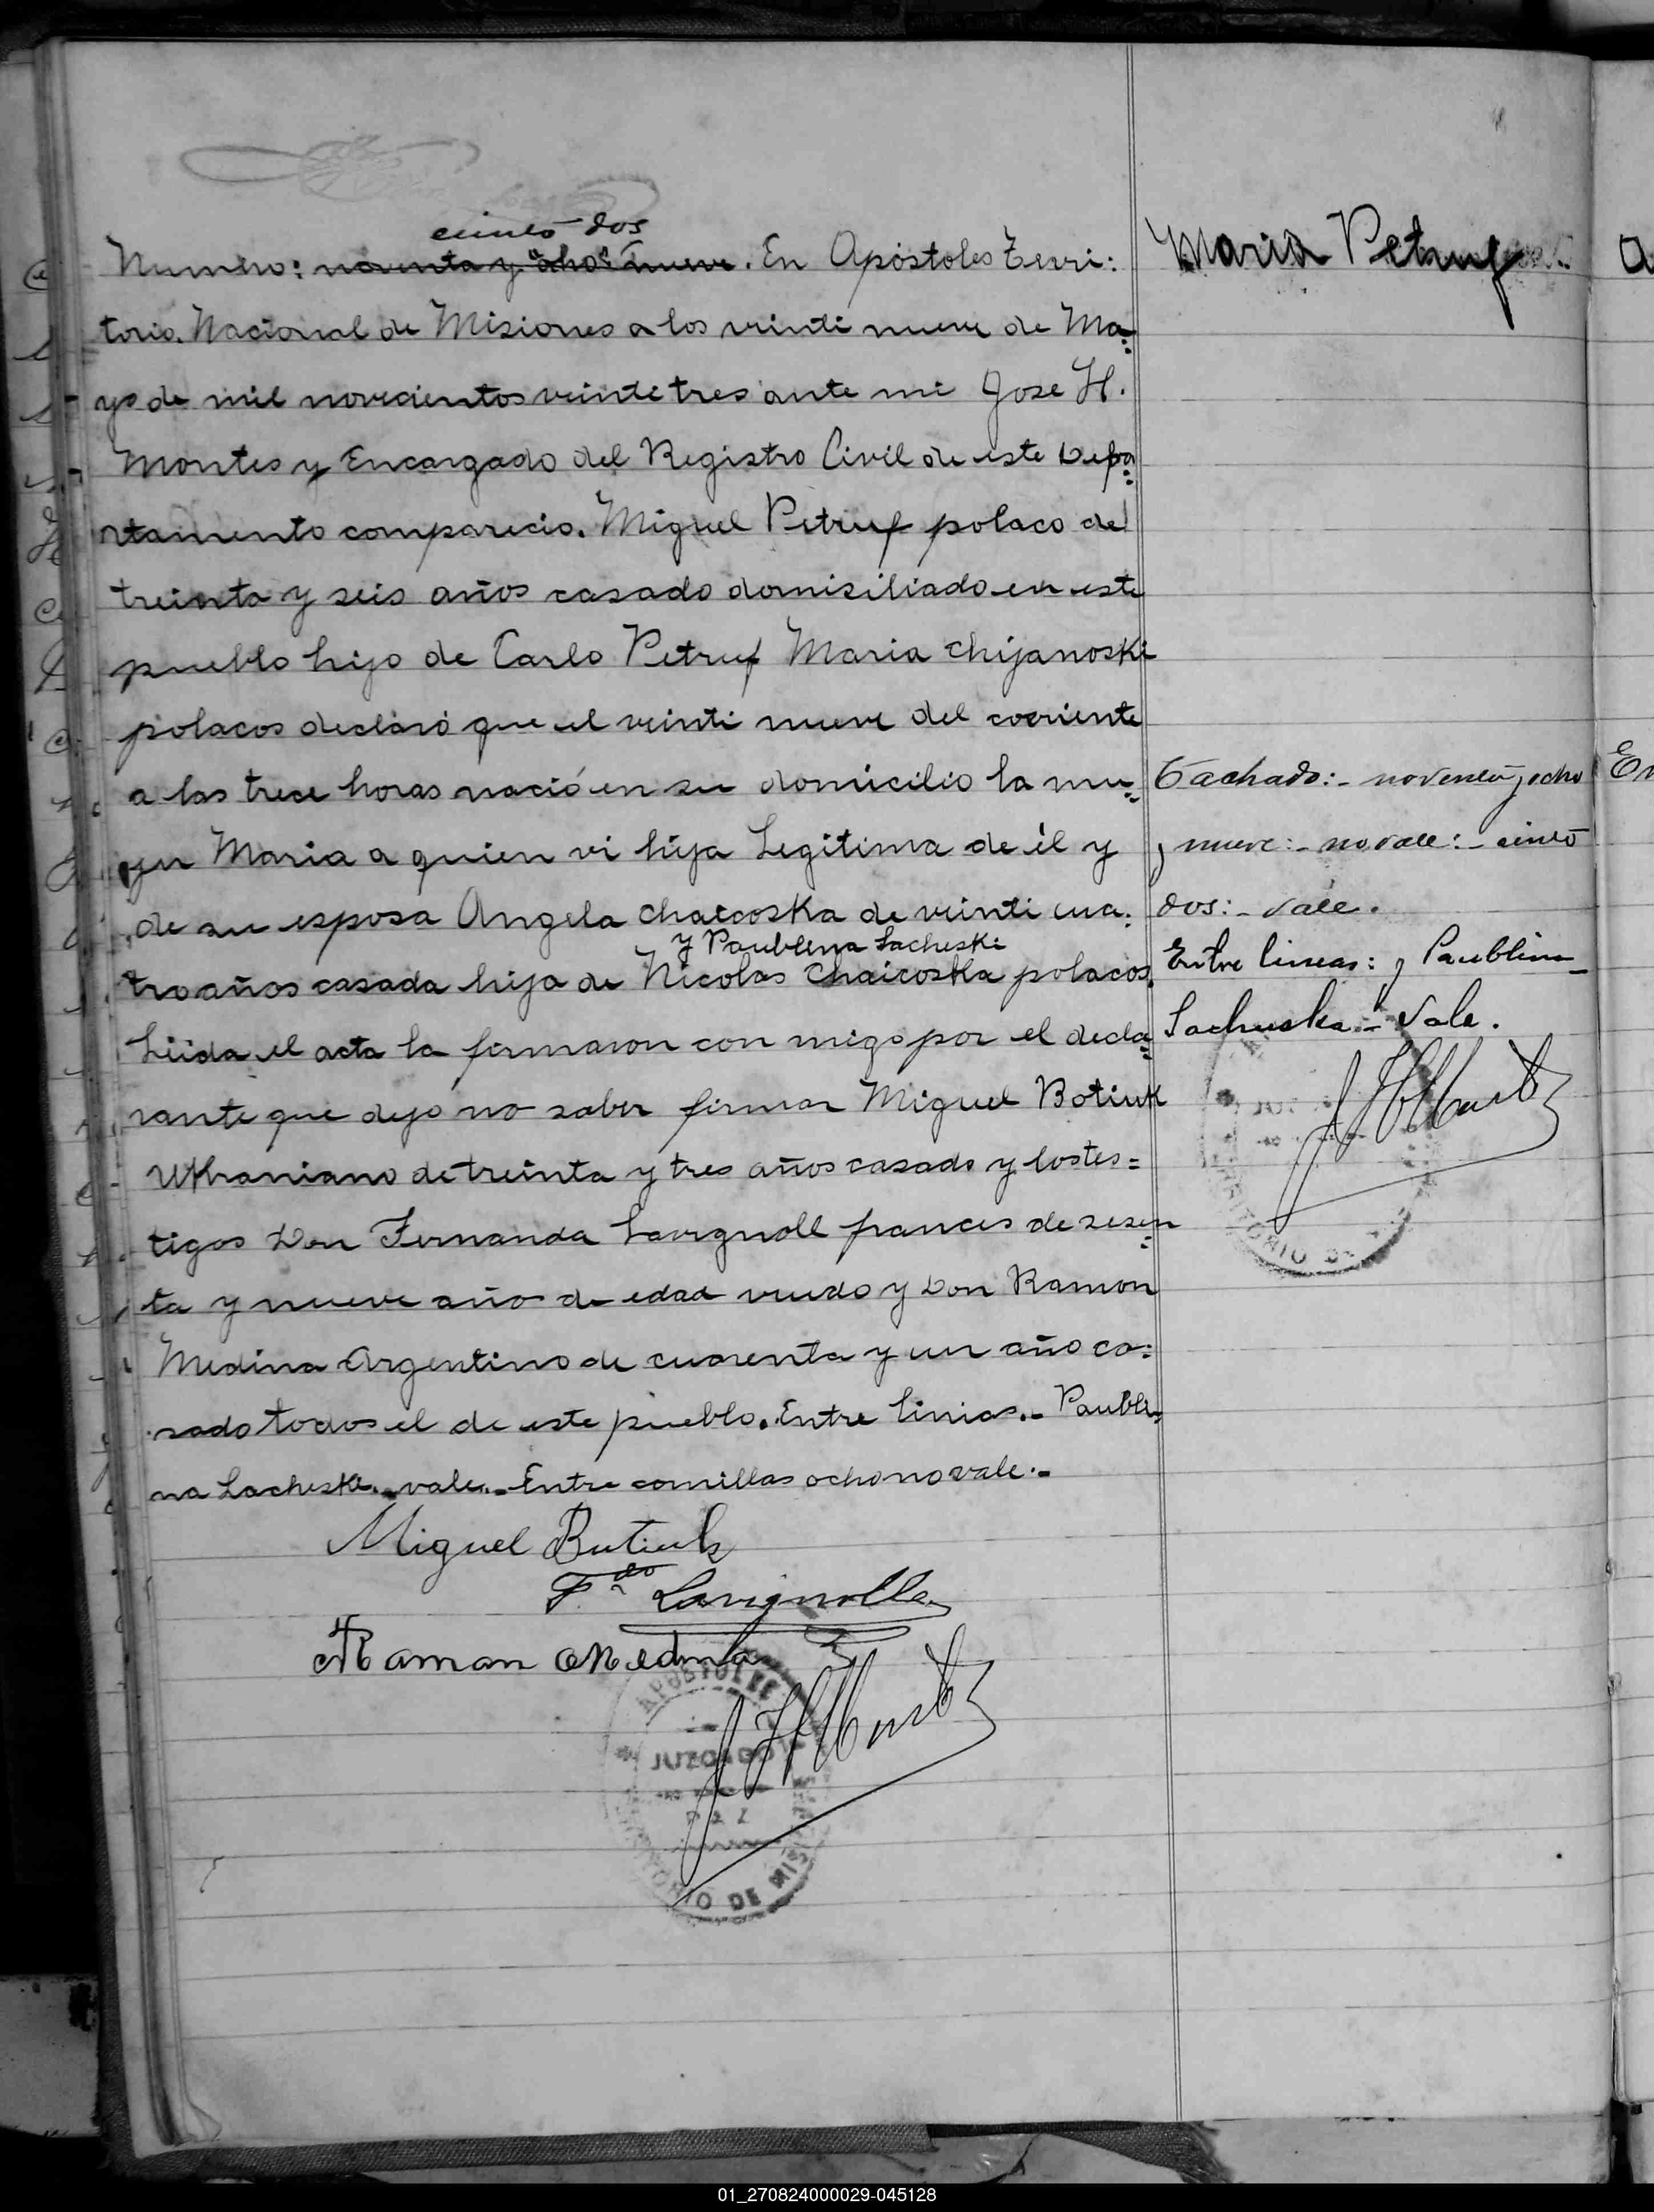 ciento dos
Numero: noventa y "ocho" nueve. En Apóstoles Terri:
torio. Nacional de Misiones a los veinti nueve de Ma=
yo de mil novecientos veinte tres ante mi Jose H.
Montes y Encargado del Registro Civil de este Depa=
rtamento comparecio. Miguel Petruf polaco de
treinta y seis años casado domisiliado en este
pueblo hijo de Carlo Petruf Maria Chijanoski
polacos declaró que el veinti nueve del corriente
a las trece horas nació en su domicilio la mu=
jer Maria a quien vi hija Legitima de él y
de su esposa Angela Chaicoska de veinti cua:
y Paublina Lacheski
tro años casada hija de Nicolas Chaicoska polacos.
Leida el acta la firmaron con migo por el decla=
rante que dejo no saber firmar Miguel Botiuk
Ukraniano de treinta y tres años casado y los tes=
tigos Don Fernanda Lavignoll frances de sesen=
ta y nueve año de edad viudo y Don Ramon
Medina Argentino de cuarenta y un año ca:
sado todos el de este pueblo. Entre linias.- Paubli=
na Lacheski.- vale.- Entre comillas ocho no vale.-
Miguel Butiuk
F.do Lavignolle
Ramon Medina
JHMontes
APOSTOLES
JUZGADO
DE PAZ
TERRITORIO DE MIS
Maria Petruf
Tachado:- noventa y ocho
y nueve:- no vale:- ciento
dos:- vale.
Entre lineas: y Paublina
Lacheska.- Vale.
JHMontes
01_270824000029-045128